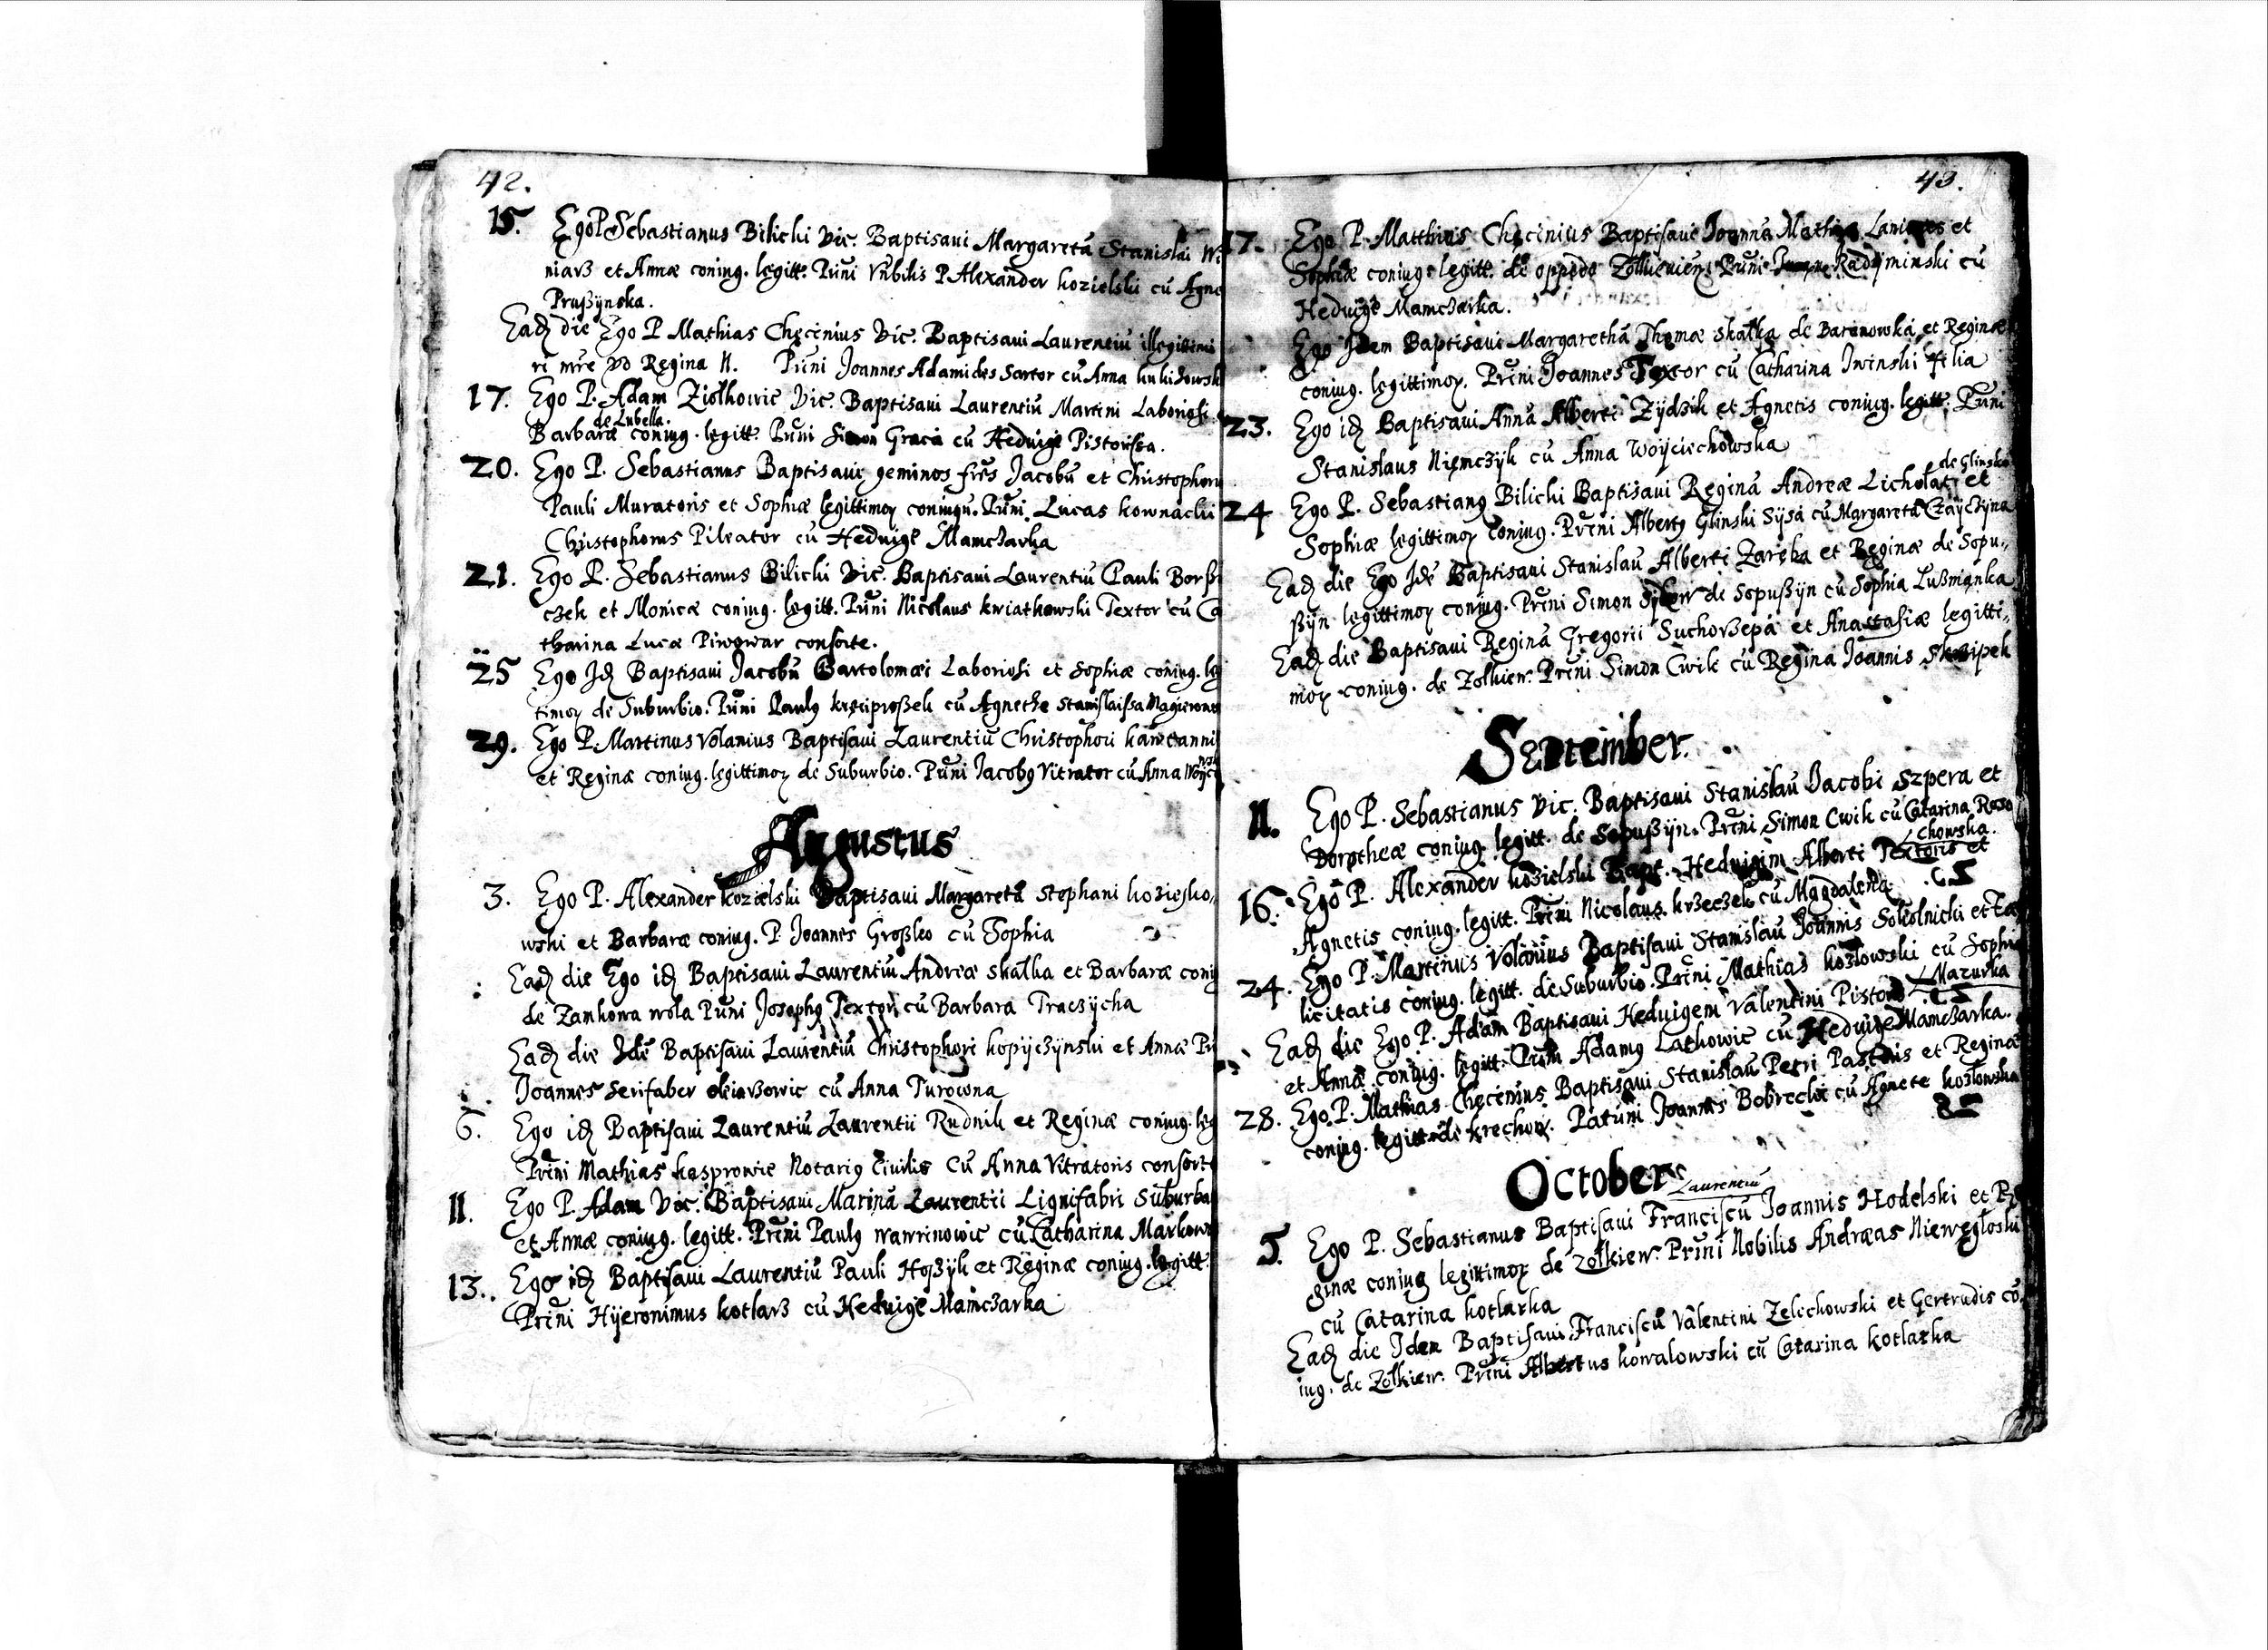 42.
15. Ego P Sebastianus Bilicki Vic. Baptisaui Margaretā Stanislai Wi
niarß et Annæ coniug. legitt. Pūni Vnbilis P Alexander kozielski cū Agne
Prußynska.
Eadͫ die Ego P Mathias Chęcinius Vic. Baptisaui Laurentiū illegittimi
ri mr̄e vo Regina N. Pūni Joannes Adamides Sartor cū Anna
17. Ego P. Adam Ziołkowic Vic. Baptisaui Laurentiū Martini Laboriosi
de Lubella.
Barbaræ coniug. legitt. Pūni Simon Graca cū Heduige Pistorißa.
20. Ego P. Sebastianus Baptisaui geminos frēs Jacobū et Christophoru
Pauli Muratoris et Sophiæ legittimoꝝ coniugū. Pūni Lucas kownacki
Christophorus Pileator cū Heduige Mamczarka
21. Ego P. Sebastianus Bilicki Vic. Baptisaui Laurentiū Pauli Borß
czek et Monicæ coniug. legitt. Pūni Nicolaus kwiatkowski Textor cū Ca
tharina Lucæ Piwowar conſorte.
25 Ego Idͫ Baptisaui Jacobū Bartolomæi Laborioſi et Sophiæ coniug. leg
timoꝝ de Suburbio. Pūni Paulꝰ kręciproßek cū Agnethe Stanislaißa
29. Ego P. Martinus Volanius Baptiſaui Laurentiū Christophori
et Reginæ coniug. legittimoꝝ de Suburbio. Pūni Jacobꝰ Vitrator cū Anna
Augustus
3. Ego P. Alexander kozielski Baptisaui Margaretā Stephani
wski et Barbaræ coniug. P. Joannes Großko cū Sophia
Eadͫ die Ego idͫ Baptisaui Laurentiū Andreæ skałka et Barbaræ coniug
de Zamkowa wola Pūni Josephꝰ Textor cū Barbara Traczycha
Eadͫ die Idē Baptiſaui Laurentiū Christophori kopyczynski et Annæ
Joannes Serifaber cū Anna Turowna
6. Ego idͫ Baptiſaui Laurentiū Laurentii Rudnik et Reginæ coniug. leg
Prēni Mathias kasprowic Notariꝰ Ciuilis cū Anna Vitratoris conſorte
11. Ego P. Adam Vic. Baptisaui Marinā Laurentii Lignifabri Suburba
et Annæ coniug. legitt. Prēni Paulꝰ wawrinowic cū Catharina
13. Ego idͫ Baptiſaui Laurentiū Pauli Hoßyk et Reginæ coniug. legitt.
Prēni Hyeronimus kotlarß cū Heduige Mamczarka
43.
17. Ego P. Matthias Chęcinius Baptiſaui Joannē Mathiæ Lanionis et
Sophiæ coniug. legitt. de oppido Zolkieuien. Pūni Radyminski cū
Heduige Mamczarka.
Ego Idem Baptisaui Margarethā Thomæ skałka de Baranowka et Reginæ
coniug. legittimoꝝ. Prēni Joannes Textor cū Catharina Iwinski filia
23. Ego idͫ Baptisaui Annā Alberti Zydzik et Agnetis coniug. legitt. Pūni
Stanislaus Niemczyk cū Anna Woyciechowska
de Glinsko
24 Ego P. Sebastianꝰ Bilicki Baptisaui Reginā Andreæ Licholat et
Sophiæ legittimoꝝ coniug. Prēni Albertꝰ Glinski Sysa cū Margareta Czayczyna
Eadͫ die Ego Idē Baptisaui Stanislaū Alberti Zaręba et Reginæ de Sopu„
ßyn legittimoꝝ coniug. Prēni Simon de Sopußyn cū Sophia Lußnianka
Eadͫ die Baptisaui Reginā Gregorii Suchorzepa et Anastasiæ legitti„
moꝝ coniug. de Zolkiew. Prēni Simon Cwik cū Regina Joannis Skrzipek
September.
11. Ego P. Sebastianus Vic. Baptisaui Stanislaū Jacobi Szpera et
Dorotheæ coniug. legitt. de Sopußyn. Prēni Simon Cwik cū Catarina Raso
chowska.
16. Ego P. Alexander kozielski Bapt. Heduigim Alberti Textoris et
Agnetis coniug. legitt. Prēni Nicolaus krzeczek cū Magdalena
24. Ego P. Martinus Volanius Baptiſaui Stanislaū Joannis Sokolnicki et Fæ
licitatis coniug. legitt. de Suburbio. Prēni Mathias kozłowski cū Sophia
Mazurka
Eadͫ die Ego P. Adam Baptisaui Heduigem Valentini Pistoris
et Annæ coniug. legitt. Prēni Adamꝰ Lathowic cū Heduige Mamczarka.
28. Ego P. Mathias Chęcinius Baptisaui Stanislaū Petri Pastoris et Reginæ
coniug. legitt. de krechow. Patūni Joannes Bobrecki cū Agnete kozlowska
October
Laurentiū
5. Ego P. Sebastianus Baptiſaui Franciſcū Joannis Hodelski et Re
ginæ coniug legittimoꝝ de Zolkiew. Prūni Nobilis Andræas Niewęgłoski
cū Catarina kotlarka
Eadͫ die Idem Baptiſaui Franciſcū Valentini Zelechowski et Gertrudis cō„
iug. de Zolkiew. Prēni Albertus kowalowski cū Catarina kotlarka